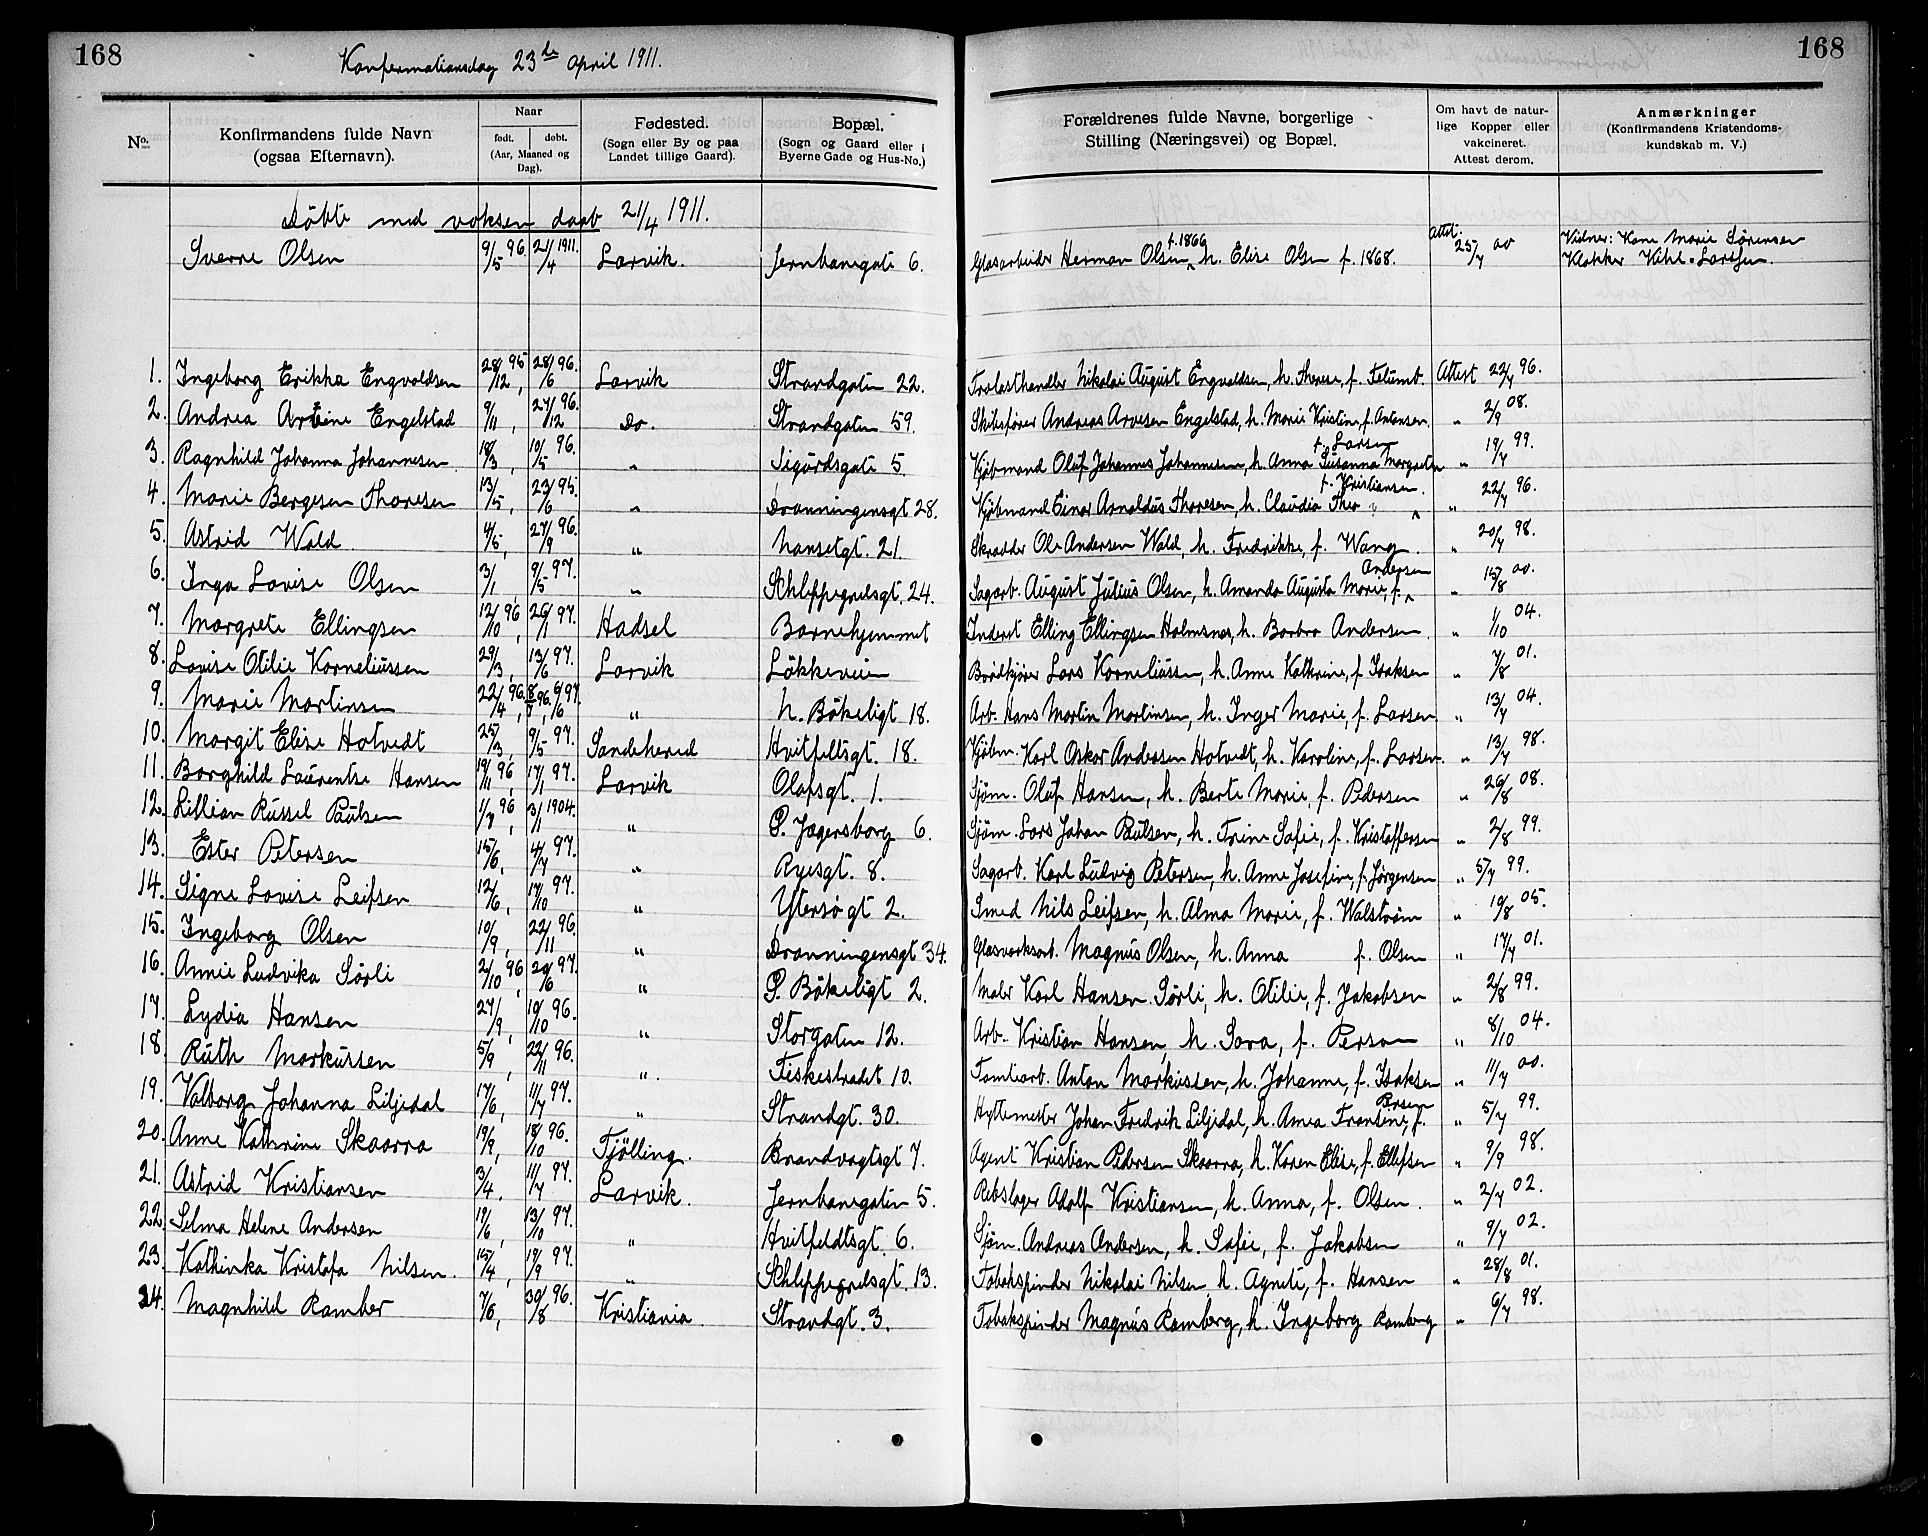 168
Konfermationsdag 23de april 1911.
168
No.
Konfirmandens fulde Navn
(ogsaa Efternavn).
Naar
født. døbt.
(Aar, Maaned og
Dag).
Fødested.
(Sogn eller By og paa
Landet tillige Gaard).
Bopæl.
(Sogn og Gaard eller i
Byerne Gade og Hus-No.)
Forældrenes fulde Navne, borgerlige
Stilling (Næringsvei) og Bopæl.
Om havt de natur-
lige Kopper eller
vakcineret.
Attest derom.
Anmærkninger
(Konfirmandens Kristendoms-
kundskab m. V.)
Döbte med voksen daab 21/4 1911.
Sverre Olsen 9/5 96. 21/4 1911. Larvik. Jernbanegate 6. Glasarbeider Herman Olsen f. 1866, h. Elise Olsen f. 1868. Attest: 25/7 00 Vidner: Kone Marie Sørensen
Klokker Kihl-Larssen.
1. Ingeborg Erikka Engvoldsen 28/12 95, 28/6 96. Larvik Strandgaten 22. Nikolai August Engvoldsen, h. Therese, f. Attest 22/7 96.
2. Andrea Arvine Engelstad 9/11, 27/12 96. Do. Strandgaten 59. Skibsfører Andreas Arvesen Engelstad, h. Marie Kristine, f. Antonsen. " 2/9 08.
3. Ragnhild Johanna Johannesen 18/3, 10/5 96. " Sigurdsgate 5 Kjöbmand Oluf Johannes Johannesen, h. Anna Susanna Margrete f. Larsen " 19/7 99.
4. Marie Bergesen Thoresen 13/5, 23/6 95. " Dronningensgt 28. Kjöbmand Einar Arnoldus Thoresen, h. Claudia Thea f. Kristiansen. " 22/7 96.
5. Astrid Wold 4/5, 27/9 96. " Nansetgt. 21. Skrædder Ole Andersen Wald, h. Fredrikke, f. Wang. " 20/7 98.
6. Inga Lovise Olsen 3/1, 9/5 97. " Schleppegrelsgt. 24. Sagarb. August Julius Olsen, h. Amanda Augusta Marie, f. Andersen " 15/8 00.
7. Margrete Ellingsen 12/10 96, 26/1 97. Hadsel Barnehjemmet Inderst Elling Ellingsen Holmsnes, h. Barbro Andersen. " 1/10 04.
8. Lovise Otilie Korneliussen 29/3, 13/6 97. Larvik Lökkeveien Lars Korneliussen, h. Anne Kathrine, f. Isaksen " 7/8 01.
9. Marie Martinsen 22/4 96, 8/5 96, 6/6 97. " N. Bökeligt 18. Arb. Hans Martin Martinsen, h. Inger Marie, f. Larsen " 13/7 04.
10. Margit Elise Hotvedt 25/3, 9/5 97. Sandeherred Hvitfeltsgt. 18. Kjöbm. Karl Oskar Andersen Hotvedt, h. Karoline, f. Larsen. " 13/7 98.
11. Borghild Laurentse Hansen 19/11 96, 17/1 97. Larvik Olafsgt. 1. Sjöm. Oluf Hansen, h. Berte Marie, f. Pedersen " 26/8 08.
12. Lillian Russel Paulsen 1/7 96, 3/1 1904. " P. Jegersborg 6. Sjöm. Lars Johan Paulsen, h. Trine Sofie, f. Kristoffersen " 2/8 99.
13. Ester Petersen 15/6, 4/7 97. " Ryesgt. 8. Sagarb. Karl Ludvig Petersen, h. Anne Josefine, f. Jörgensen " 5/7 99.
14. Signe Lovise Leifsen 12/6, 17/10 97. " Ytersö gt 2. Smed Nils Leifsen, h. Alma Marie, f. Walström " 19/8 05.
15. Ingeborg Olsen 10/9, 22/11 96. " Dronningensgt 34. Glasverksarb. Magnus Olsen, h. Anna f. Olsen " 17/7 01.
16. Annie Ludvika Sörli 2/10 96, 20/6 97. " P. Bökeligt 2. Maler Karl Hansen Sörli, h. Otilie, f. Jakobsen " 2/8 99.
17. Lydia Hansen 27/9, 19/10 96. " Storgaten 12. Arb. Kristian Hansen, h. Sara, f. Person " 8/10 04.
18. Ruth Markussen 5/9, 22/11 96. " Feskestradet 10. Tomtearb. Anton Markussen, h. Johanne, f. Isaksen " 11/7 00.
19. Valborg Johanna Liljedal 17/6, 11/7 97. " Strandgt. 30. Hyttemester Johan Fredrik Liljedal, h. Amea Frantine, f. Persen " 5/7 99.
20. Anne Kathrine Skaarra 19/9, 18/10 96. Tjölling. Brandvagtsgt 7. Agent Kristian Pedersen Skaarra, h. Karen Elise, f. Ellefsen " 9/9 98.
21. Astrid Kristiansen 3/4, 11/7 97. Larvik. Jernbanegaten 5. Rebslager Adolf Kristiansen, h. Anna, f. Olsen. " 2/7 02.
22. Selma Helene Andersen 19/6, 13/10 97. " Hvitfeldtsgt. 6. Sjöm. Andreas Andersen, h. Sofie, f. Jakobsen " 9/7 02.
23. Kathinka Kristofa Nilsen. 15/4, 19/9 97. " Schleppegrelsgt. 13. Tobakspinder Nikolai Nilsen, h. Agnete, f. Hansen " 28/8 01.
24. Magnhild Ramber 7/6, 30/8 96. Kristiania. Strandgt. 3. Tobakspinder Magnus Ramberg, h. Ingeborg Ramberg " 6/7 98.